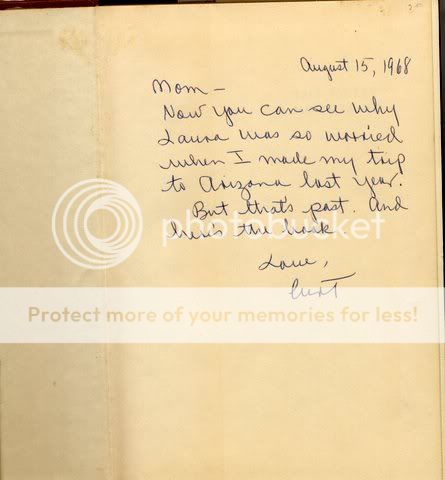 August 15, 1968
Mom —
Now you can see why
Laura was so worried
when I made my trip
to Arizona last year.
But that's past. And
here's the book
Love,
Curt
photobucket
Protect more of your memories for less!